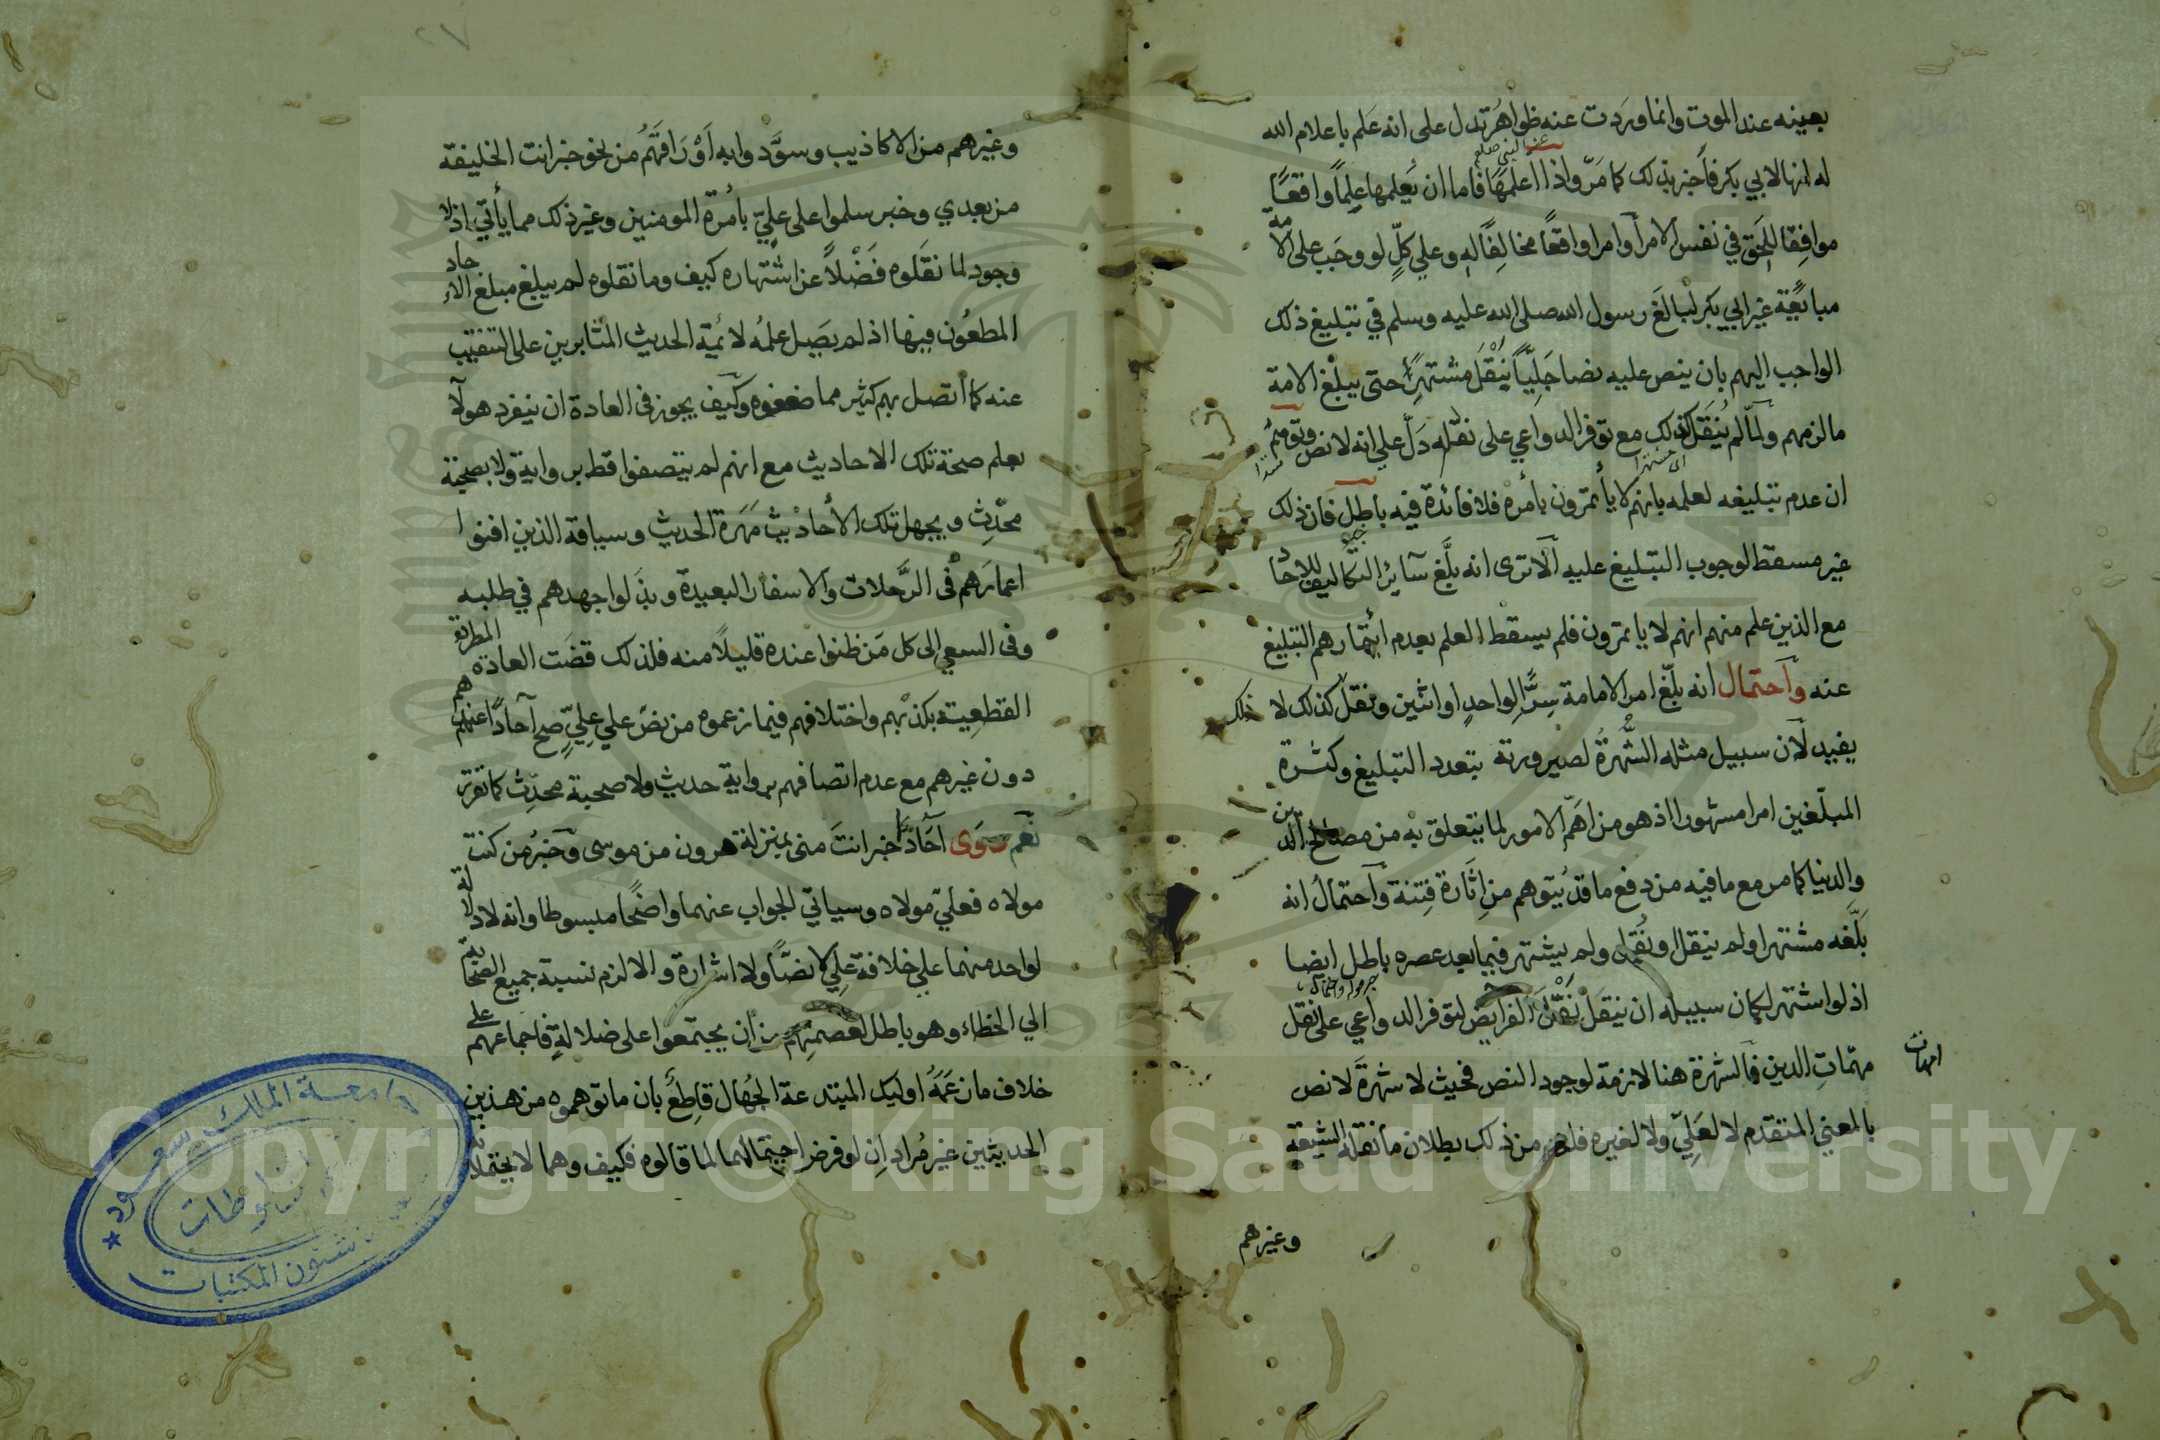 بعينه عند الموت وانما وردت عنه ظواهر تدل على انه علم باعلام الله
له انها لابي بكر فاخبر بذلك كما مر واذا اعلمها فاما ان يعلمها علما واقعا
موافقا للحق في نفس الامر او امرا واقعا مخالفا له وعلى كل لو وجب على الامة
مبايعة غير ابي بكر لبالغ رسول الله صلى الله عليه وسلم في تبليغ ذلك
الواجب اليهم بان ينص عليه نصا جليا ينقل مشتهرا حتى يبلغ الامة
ما لزمهم ولما لم ينقل كذلك مع توفر الدواعي على نقله دل على انه لا نص وتوهم
ان عدم تبليغه لعلمه بانهم لا يأتمرون بأمره فلا فائدة فيه باطل فان ذلك
غير مسقط لوجوب التبليغ عليه الا ترى انه بلغ سائر التكاليف للاحاد
مع الذين علم منهم انهم لا ياتمرون فلم يسقط العلم بعدم ائتمارهم التبليغ
عنه واحتمال انه بلغ امر الامامة سرا لواحد او اثنين ونقل كذلك لا
يفيد لان سبيل مثله الشهرة لصيرورته بتعدد التبليغ وكثرة
المبلغين امرا مشهورا اذ هو من اهم الامور لما يتعلق به من مصالح الدين
والدنيا كما مر مع ما فيه من دفع ما قد يتوهم من اثارة فتنة واحتمال انه
بلغه مشتهرا ولم ينقل او نقل ولم يشتهر فيما بعد عصره باطل ايضا
اذ لو اشتهر لكان سبيله ان ينقل نقل الفرايض لتوفر الدواعي على نقل
مهمات الدين فالشهرة هنا لازمة لوجود النص فحيث لا شهرة لا نص
بالمعنى المتقدم لا لعلي ولا لغيره فلزم من ذلك بطلان ما نقله الشيعة
وغيرهم
وغيرهم من الاكاذيب وسودوا به اوراقهم من نحو خبر انت الخليفة
من بعدي وخبر سلموا على علي بامرة المومنين وغير ذلك مما يأتي اذ لا
وجود لما نقلوه فضلا عن اشتهاره كيف وما نقلوه لم يبلغ مبلغ الاحاد
المطعون فيها اذ لم يصل علمه لائمة الحديث المثابرين على التنقيب
عنه كما اتصل بهم كثير مما ضعفوه وكيف يجوز في العادة ان ينفرد هولا
بعلم صحة تلك الاحاديث مع انهم لم يتصفوا قط برواية ولا بصحبة
محدث ويجهل تلك الأحاديث مهرة الحديث وسباقه الذين افنوا
اعمارهم في الرحلات والاسفار البعيدة وبذلوا جهدهم في طلبه
وفي السعي الى كل من ظنوا عنده قليلا منه فلذلك قضت العادة المطردة
القطعية بكذبهم واختلافهم فيما زعموه من نص على علي صح آحادا عندهم
دون غيرهم مع عدم اتصافهم برواية حديث ولا صحبة محدث كما تقرر
نعم روى آحادا خبر انت مني بمنزلة هرون من موسى وخبر من كنت
مولاه فعلي مولاه وسياتي الجواب عنهما واضحا مبسوطا وانه لا دلالة
لواحد منهما على خلافة علي لا نصا ولا اشارة والا لزم نسبة جميع الصحابة
الى الخطاء وهو باطل لعصمتهم من ان يجتمعوا على ضلالة فاجماعهم على
خلاف ما زعمه اوليك المبتدعة الجهال قاطع بان ما توهموه من هذين
الحديثين غير مراد ان لو فرض احتمالهما لما قالوه فكيف وهما لا يحتملانه
جامعة الملك سعود
شئون المكتبات
Copyright © King Saud University